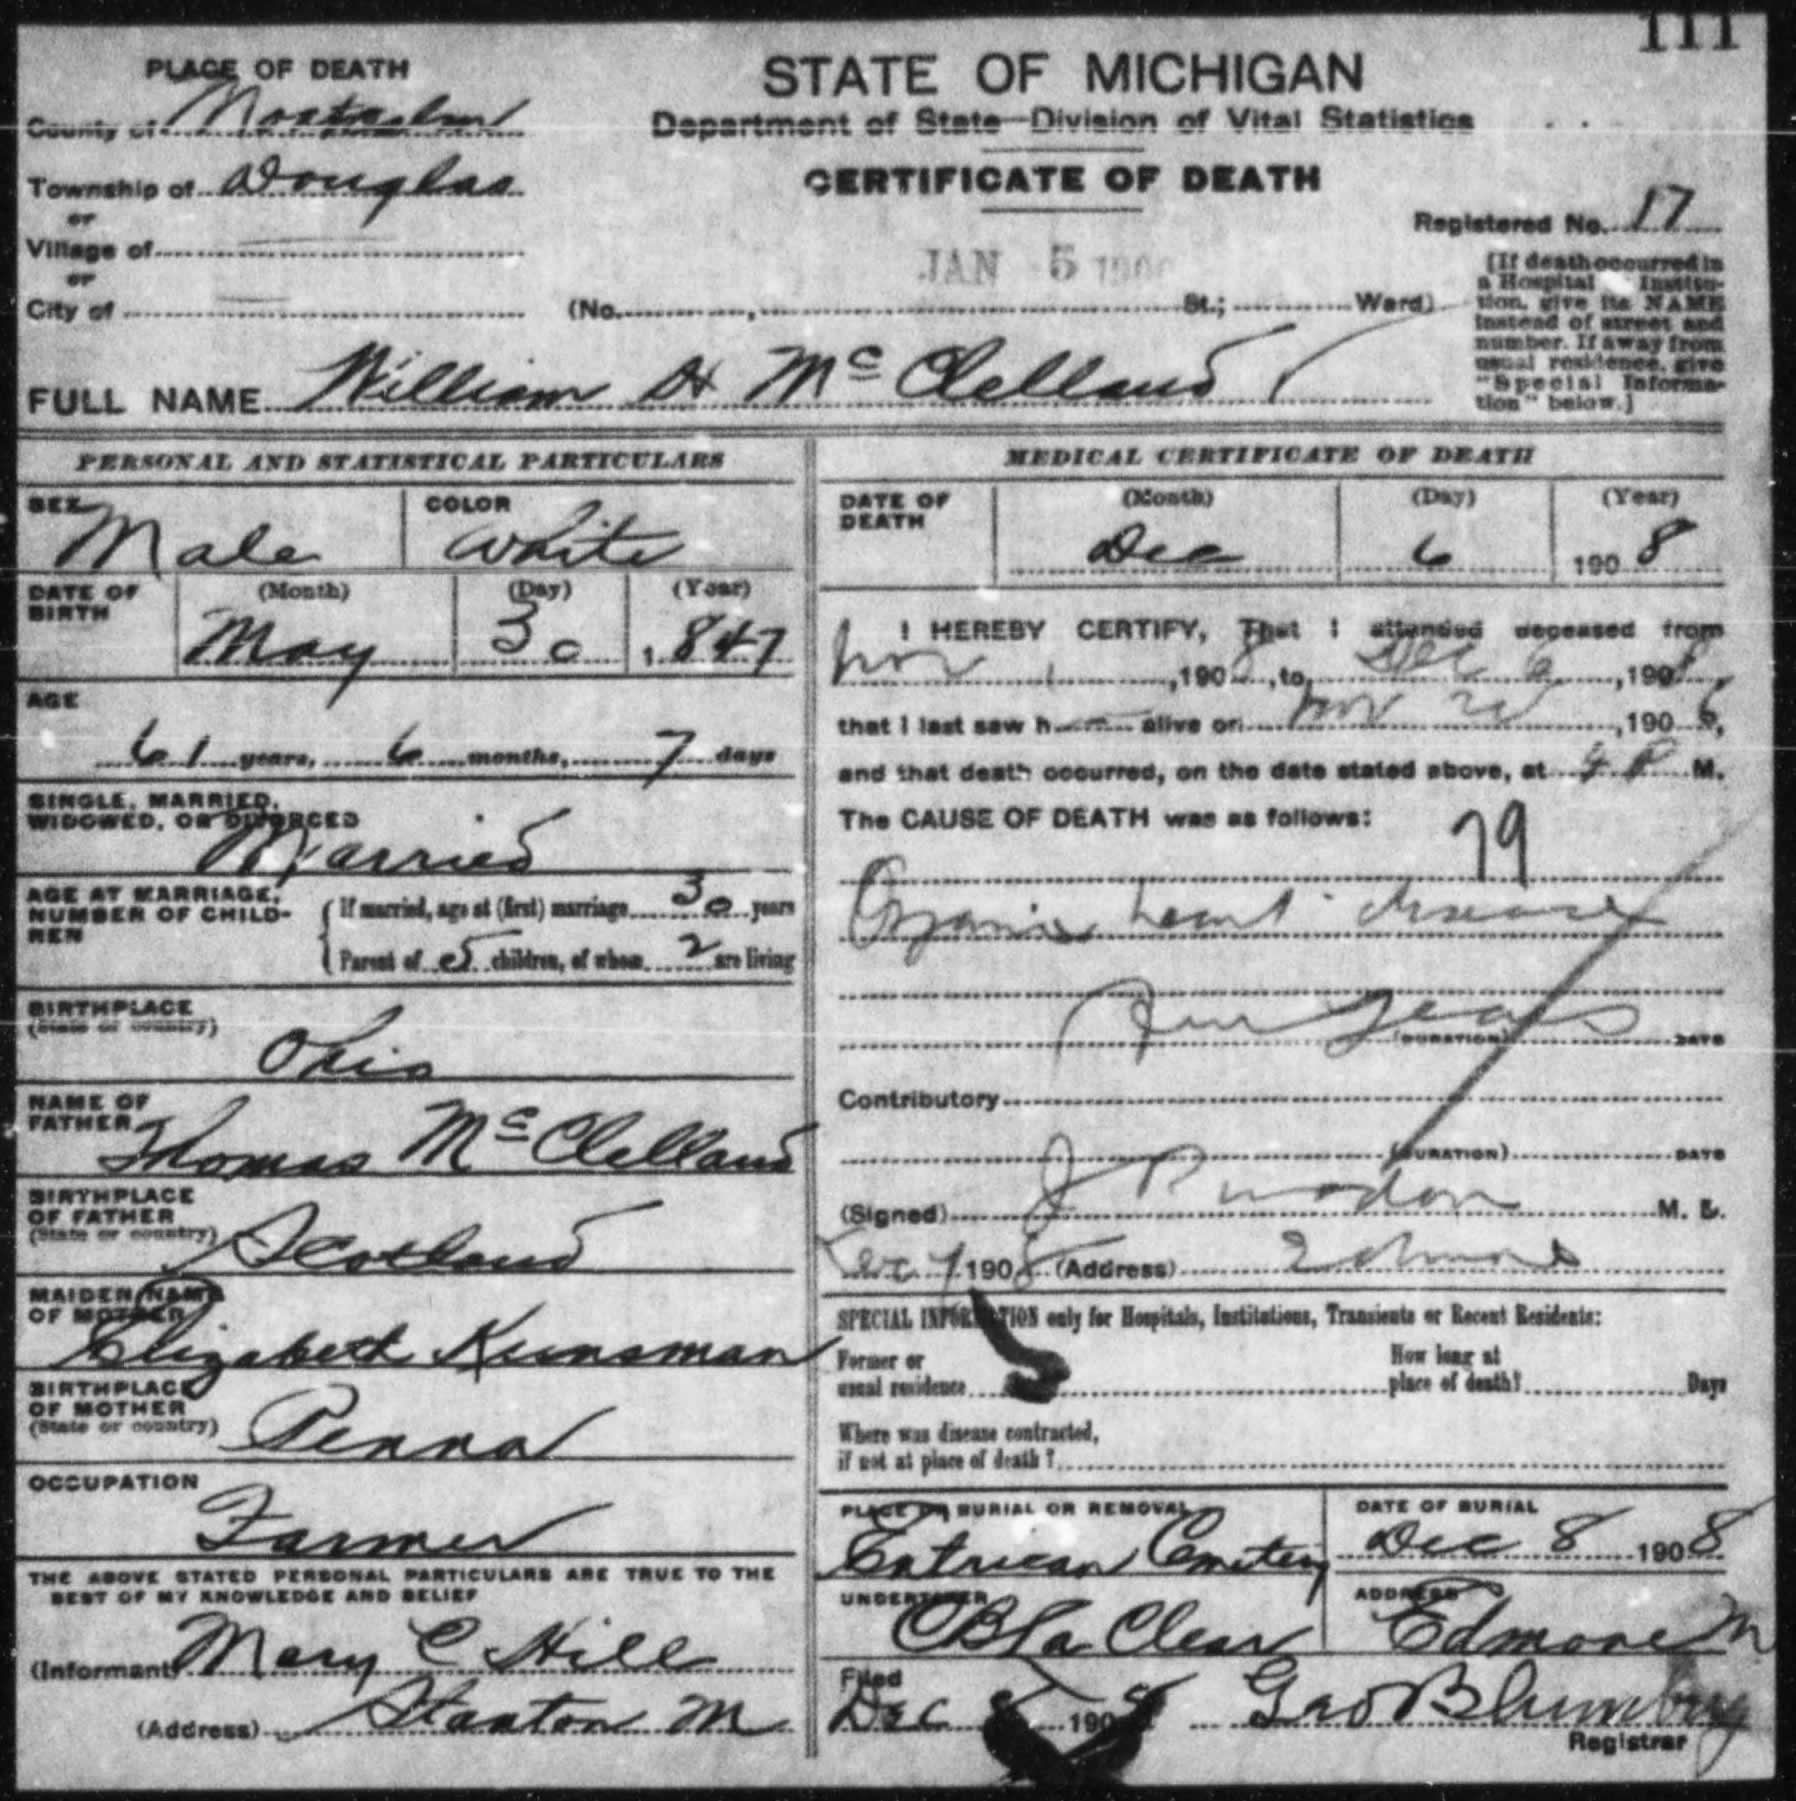 111
PLACE OF DEATH
County of Montcalm
Township of Douglas
or
Village of
or
City of
STATE OF MICHIGAN
Department of State—Division of Vital Statistics
CERTIFICATE OF DEATH
Registered No. 17
JAN 5
(No. , St.; Ward)
[If death occurred in
a Hospital Institu-
tion, give its NAME
instead of street and
number. If away from
usual residence, give
"Special Informa-
tion" below.]
FULL NAME William H McClelland
PERSONAL AND STATISTICAL PARTICULARS
SEX Male
COLOR White
DATE OF BIRTH (Month) (Day) (Year)
May 30 1,847
AGE
61 years, 6 months, 7 days
SINGLE, MARRIED,
WIDOWED, OR DIVORCED
Married
AGE AT MARRIAGE,
NUMBER OF CHILD-
REN
If married, age at (first) marriage 30 years
Parent of 5 children, of whom 2 are living
BIRTHPLACE
(State or country)
Ohio
NAME OF
FATHER
Thomas McClelland
BIRTHPLACE
OF FATHER
(State or country)
Scotland
MAIDEN NAME
OF MOTHER
Elizabeth Kunsman
BIRTHPLACE
OF MOTHER
(State or country)
Penna
OCCUPATION
Farmer
THE ABOVE STATED PERSONAL PARTICULARS ARE TRUE TO THE
BEST OF MY KNOWLEDGE AND BELIEF
(Informant) Mary C Hill
(Address) Stanton M
MEDICAL CERTIFICATE OF DEATH
DATE OF DEATH (Month) (Day) (Year)
Dec 6 1908
I HEREBY CERTIFY, That I attended deceased from
Nov 1, 1908, to Dec 6, 1908,
that I last saw h alive on Nov , 190
and that death occurred, on the date stated above, at 4 P M.
The CAUSE OF DEATH was as follows:
79
Organic heart disease
years
(DURATION) DAYS
Contributory
(DURATION) DAYS
(Signed) J Purdon M. D.
Dec 7 1908 (Address) Edmore
SPECIAL INFORMATION only for Hospitals, Institutions, Transients or Recent Residents:
Former or
usual residence
How long at
place of death? Days
Where was disease contracted,
if not at place of death?
PLACE OF BURIAL OR REMOVAL
Entrican Cemetery
DATE OF BURIAL
Dec 8 1908
UNDERTAKER
C B La Clear
ADDRESS
Edmore M
Filed
Dec 8 1908 Geo Blumberg
Registrar